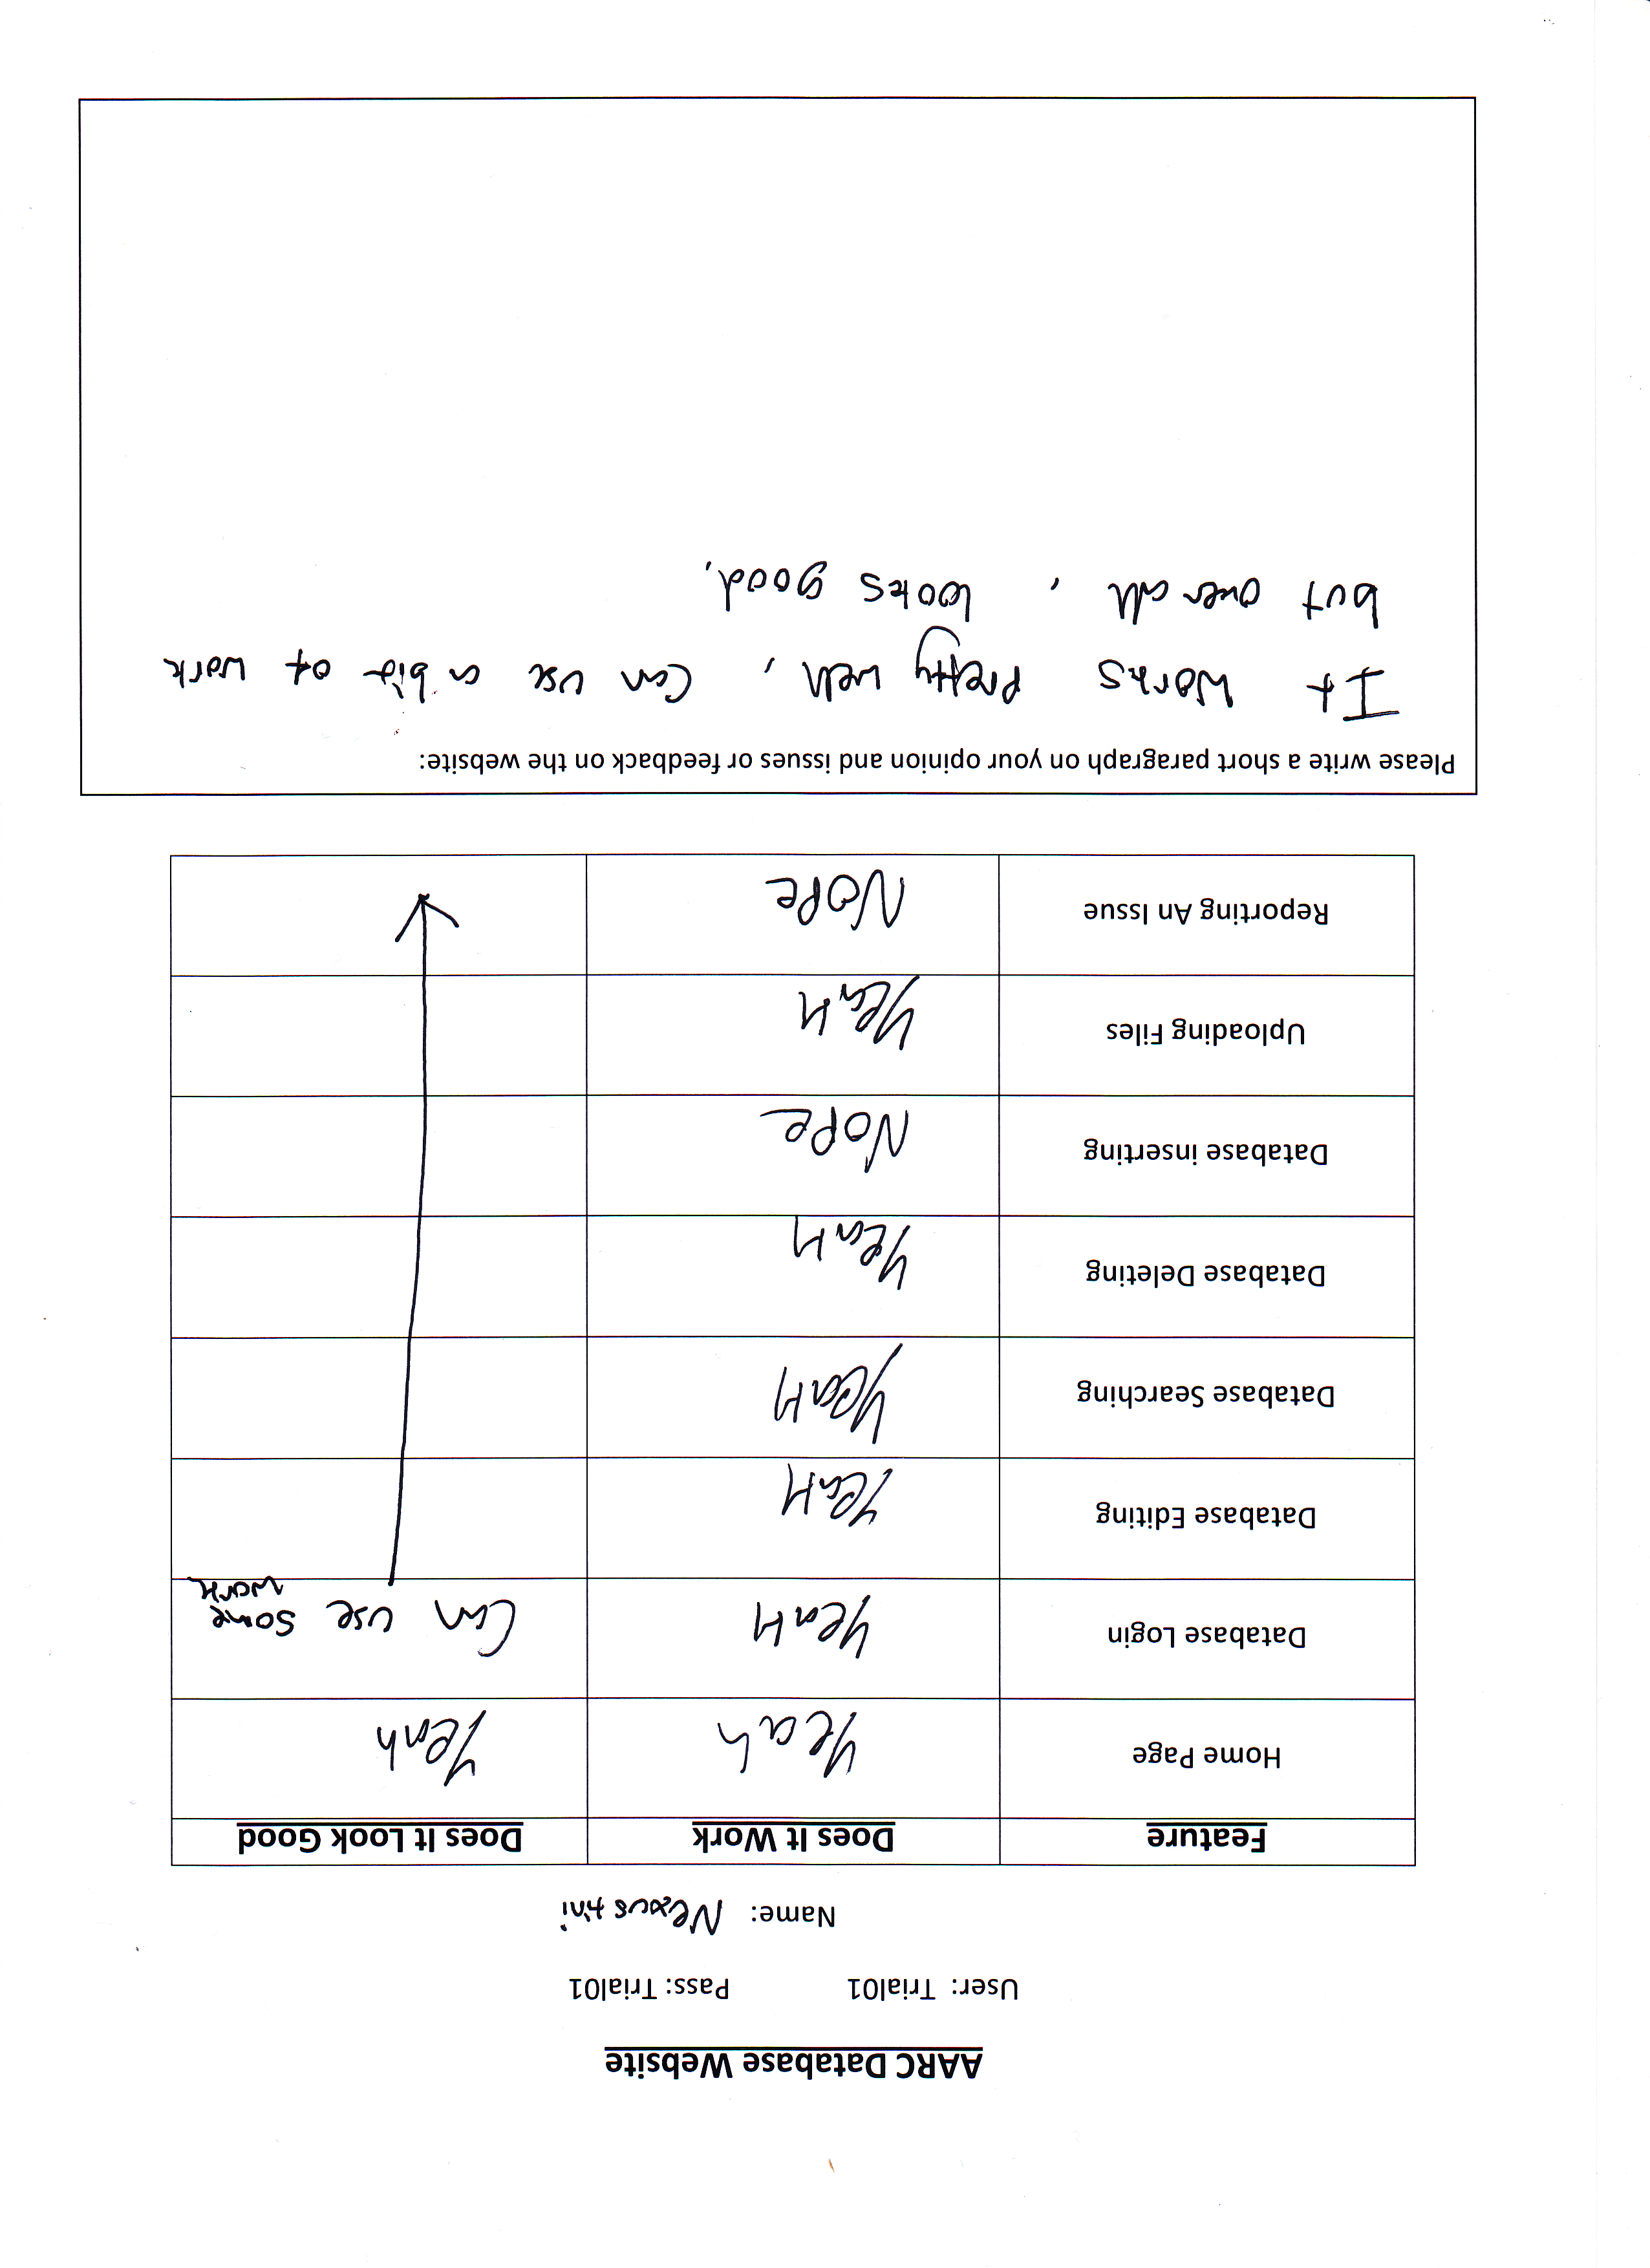 AARC Database Website
User: Trial01 Pass: Trial01
Name: Nexus tini
Feature Does It Work Does It Look Good
Home Page Yeah Yeah
Database Login YeaH Can use some work
Database Editing YeaH
Database Searching YeaH
Database Deleting YeaH
Database inserting NOPe
Uploading Files YeaH
Reporting An Issue NOPe
Please write a short paragraph on your opinion and issues or feedback on the website:
It works pretty well, Can use a bit of work
but over all, looks good.